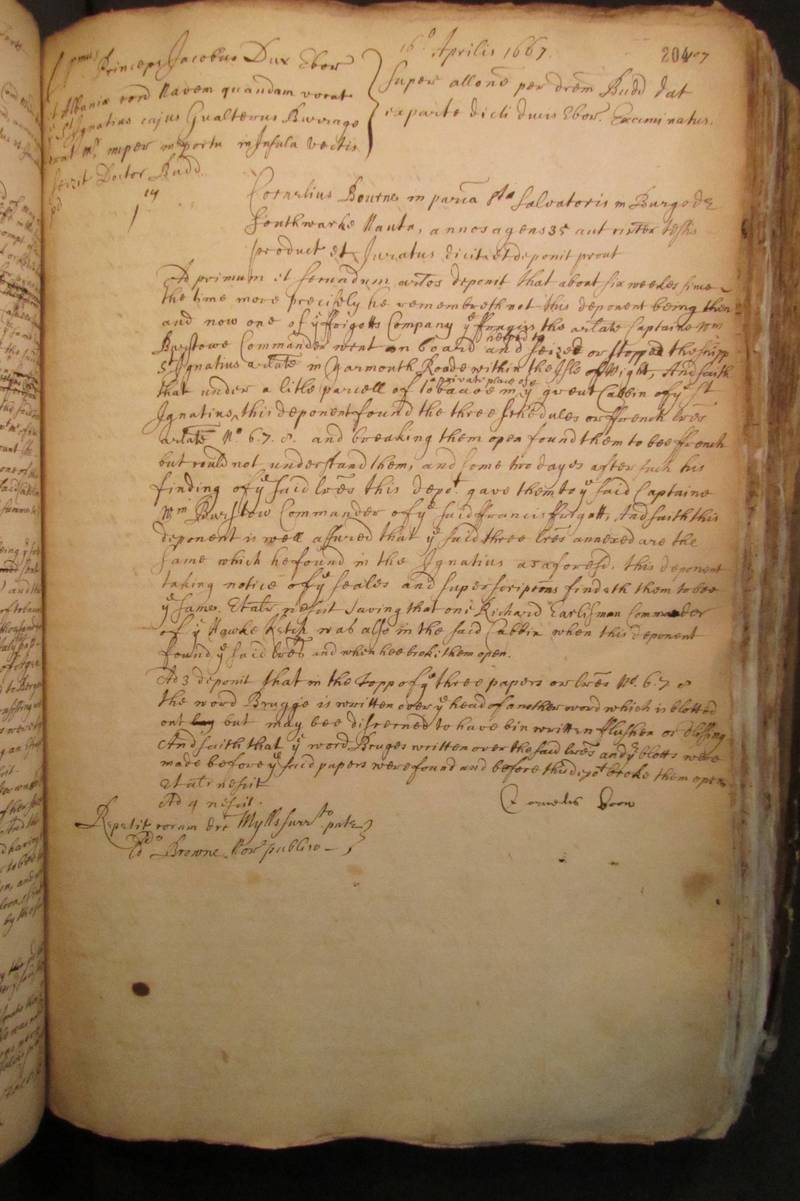 16o Aprilis 1667.
204 07
Princeps Jacobus Dux Ebor
et Albania cond Navem quandam vocat
St Ignatius cujus Gualterus
erat Mr nuper in portu in Insula Vectis.
Doctor Budd.
Super allone per drem Budd dat
ex parte dicti ducis Ebor. Examinatus.
Cornelius Bourne in paria Sti Salvatoris in Burgo de
Southwarke Nauta, annos agens 35 aut testis
product et Juratus dicit et deponit prout
Ad primum et secundum artos deponit that about six weekes since
the time more precisely he remembreth not this deponent being then
and now one of ye ffrigotts Company ye ffrancis the arlate Captaine Wm
Burstowe Commander went on board and seized or stopped the shipp
St Ignatius arlate in Yarmouth Roade within the Isle of Wight, And saith
that under a litle parcell of tobaccoe in a private place of ye great Cabbin of ye St
Ignatius, this deponent found the three schedules or ffrench lres
arlate No 6. 7. 8. and breaking them open found them to bee ffrench
but could not understand them, and some two dayes after such his
finding of ye said lres this dept gave them to ye said Captaine
Wm Burstow Commander of ye said ffrancis ffrigott, And saith this
deponent is well assured that ye said three lres annexed are the
same which he found in the Ignatius as aforesd. this deponent
taking notice of ye seales and superscriptions findeth them to bee
ye same. Et alr nescit saving that one Richard Earlisman Commander
of ye Hawke Ketch was also in the said Cabbin when this deponent
found ye said lres and when hee broke them open.
Ad 3 deponit that in the topp of ye three papers or lres No. 6. 7 8
the word Brugge is written over ye head of another word which is blotted
out but may bee discerned to have bin written fflushen or vlissing
And saith that ye word Bruges written over the said lres and ye blotts were
made before ye said papers were found and before this dept broke them open
Et alr nescit
Ad 4 nescit.
Cornelis Boon
Repetit coram dre Mylls surrto
Browne Norio publico